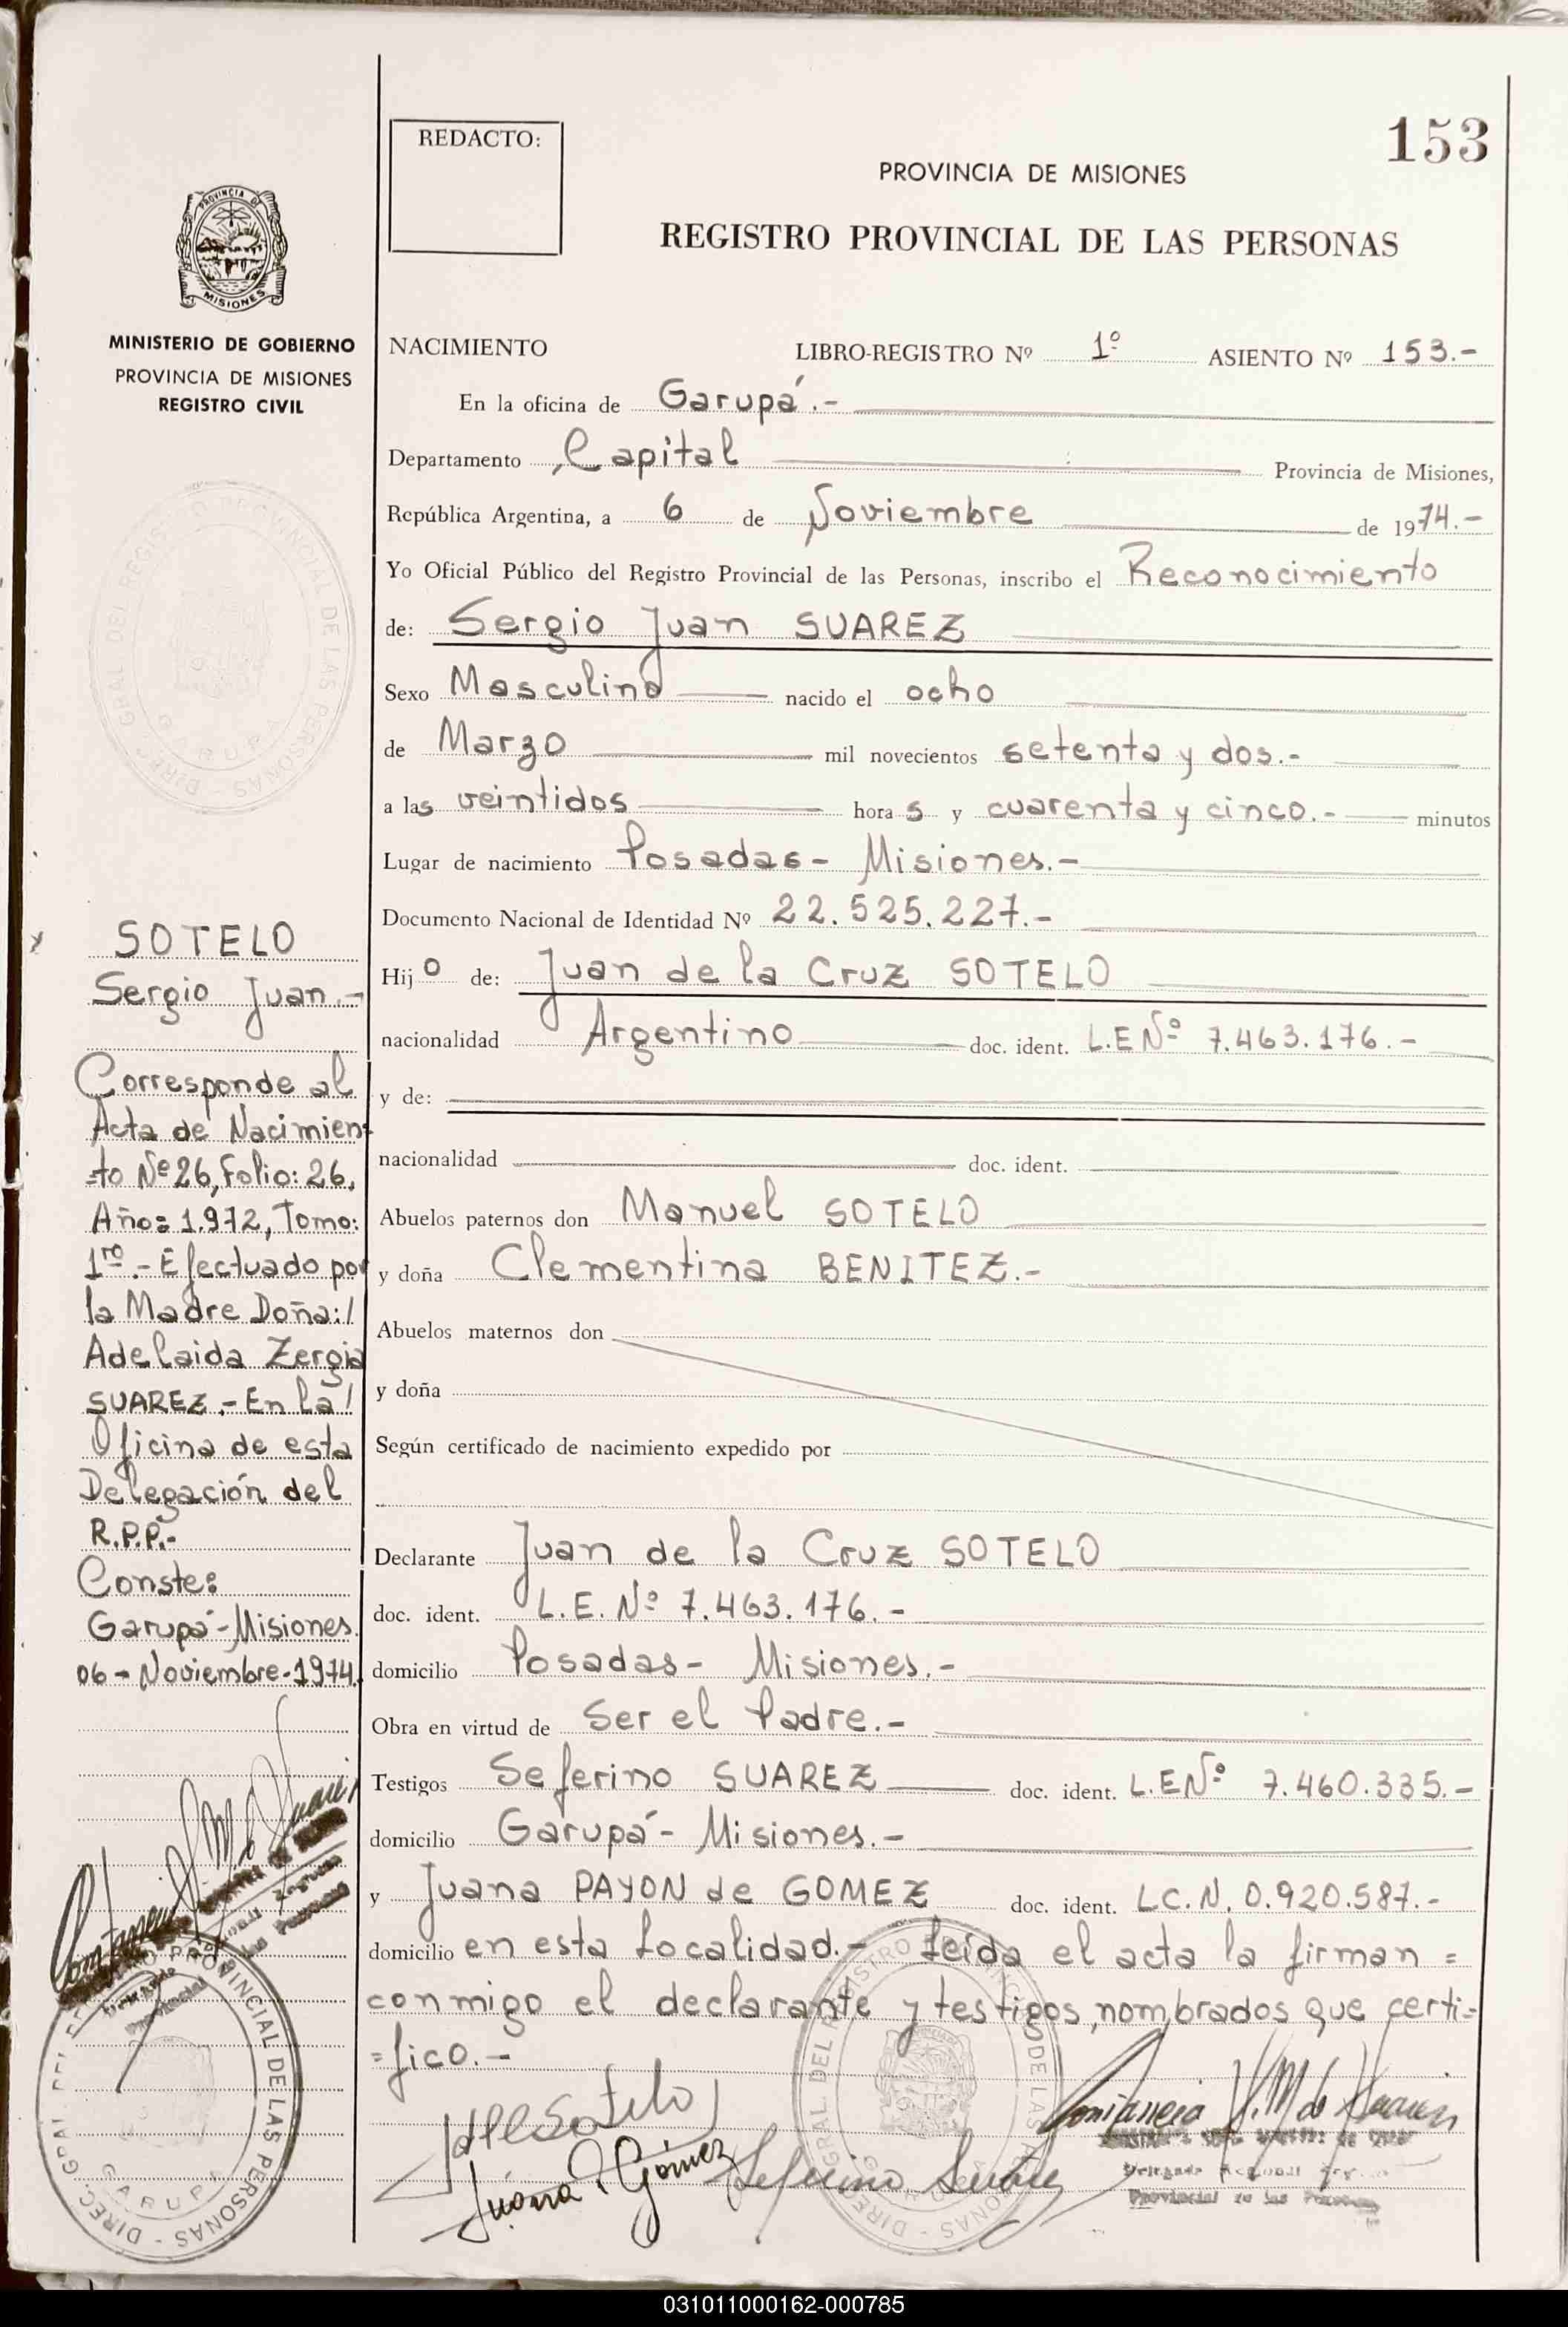 153
REDACTO:
PROVINCIA DE MISIONES
REGISTRO PROVINCIAL DE LAS PERSONAS
PROVINCIA DE
MISIONES
MINISTERIO DE GOBIERNO
PROVINCIA DE MISIONES
REGISTRO CIVIL
NACIMIENTO LIBRO-REGISTRO Nº 1º ASIENTO Nº 153.-
En la oficina de Garupá.-
Departamento Capital Provincia de Misiones,
República Argentina, a 6 de Noviembre de 1974.-
Yo Oficial Público del Registro Provincial de las Personas, inscribo el Reconocimiento
de: Sergio Juan SUAREZ
Sexo Masculino nacido el ocho
de Marzo mil novecientos setenta y dos.-
a las veintidos horas y cuarenta y cinco.- minutos
Lugar de nacimiento Posadas- Misiones.-
Documento Nacional de Identidad Nº 22.525.227.-
Hijo de: Juan de la Cruz SOTELO
nacionalidad Argentino doc. ident. L.E Nº 7.463.176.-
y de:
nacionalidad doc. ident.
Abuelos paternos don Manuel SOTELO
y doña Clementina BENITEZ.-
Abuelos maternos don
y doña
Según certificado de nacimiento expedido por
Declarante Juan de la Cruz SOTELO
doc. ident. L.E. Nº 7.463.176.-
domicilio Posadas- Misiones.-
Obra en virtud de Ser el Padre.-
Testigos Seferino SUAREZ doc. ident. L.E Nº 7.460.335.-
domicilio Garupá- Misiones.-
y Juana PAYON de GOMEZ doc. ident. LC.N. 0.920.587.-
domicilio en esta Localidad.- Leída el acta la firman =
conmigo el declarante y testigos, nombrados que certi=
=fico.-
SOTELO
Sergio Juan.-
Corresponde al
Acta de Nacimien
=to Nº 26, Folio: 26,
Año= 1.972, Tomo:
1ro.- Efectuado por
la Madre Doña:/
Adelaida Zergia
SUAREZ.- En la/
Oficina de esta
Delegación del
R.P.P.-
Conste:
Garupá-Misiones.
06-Noviembre-1974.
DIREC. GRAL DEL REGISTRO PROVINCIAL DE LAS PERSONAS
GARUPA
Juana P. Gómez
Seferino Suárez
Delegada
Provincial de las Personas
031011000162-000785